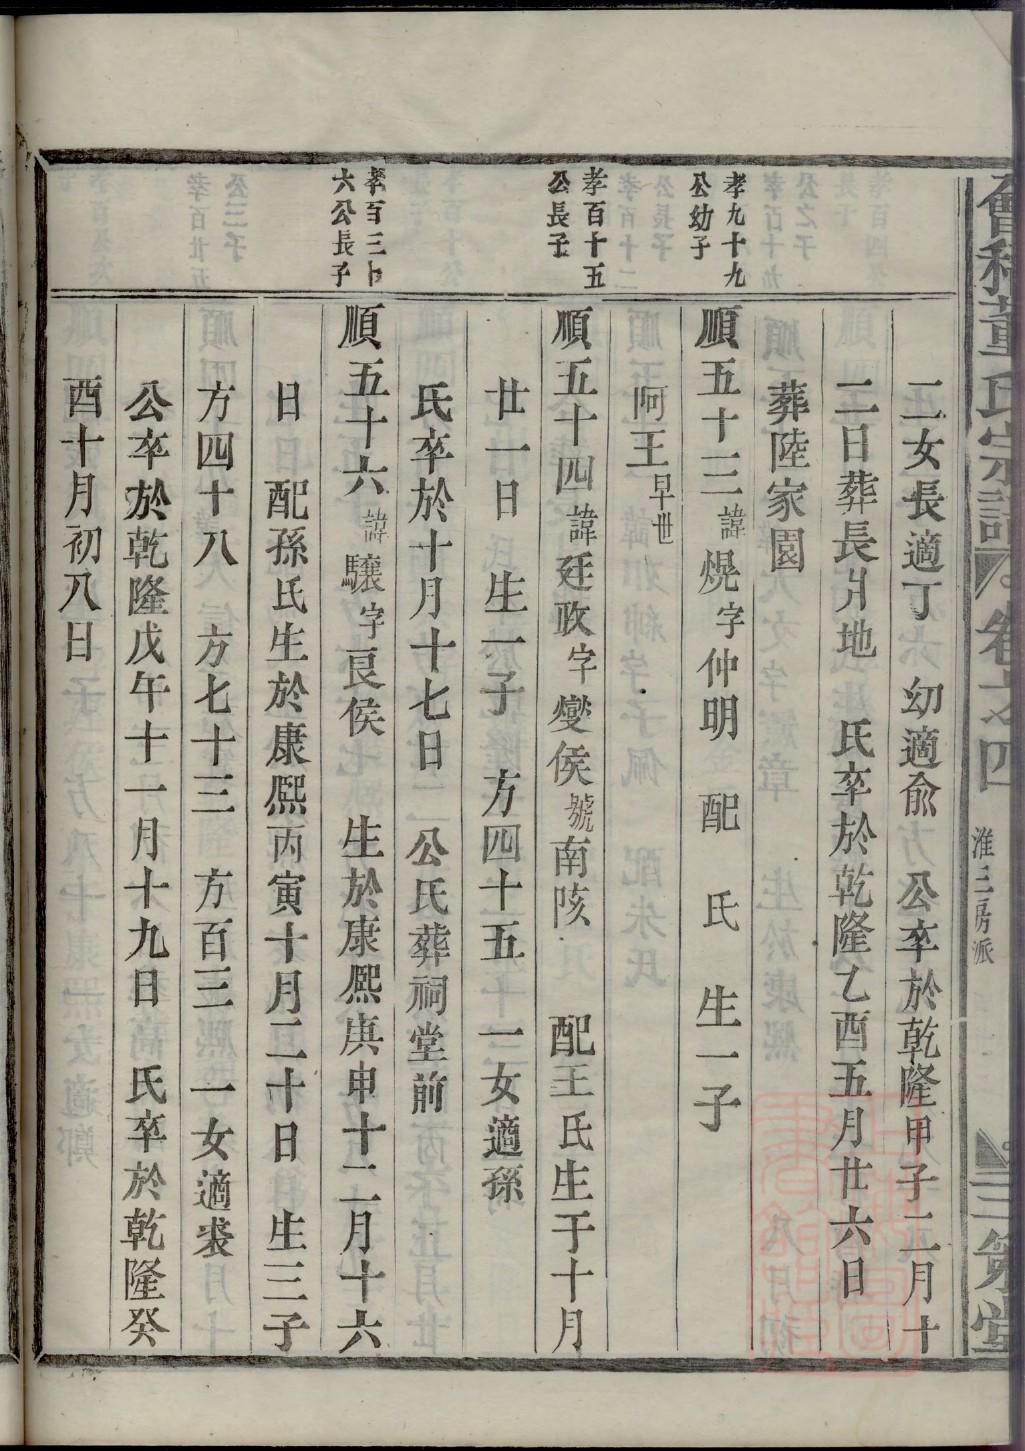 會稽董氏宗譜 卷之四 淮三房派 三策堂
二女長適丁 幼適俞 公卒於乾隆甲子二月十
二日葬長爿地 氏卒於乾隆乙酉五月廿六日
葬陸家園
孝九十九
公幼子
順五十三諱熀字仲明 配 氏 生一子
阿王早世
孝百十五
公長子
順五十四諱廷政字燮侯號南陔 配王氏生于十月
廿一日 生一子 方四十五 一女適孫
氏卒於十月十七日 公氏葬祠堂前
孝百三十
六公長子
順五十六諱驤字良侯 生於康熙庚申十二月十六
日 配孫氏生於康熙丙寅十月二十日 生三子
方四十八 方七十三 方百三 一女適裘
公卒於乾隆戊午十一月十九日 氏卒於乾隆癸
酉十月初八日